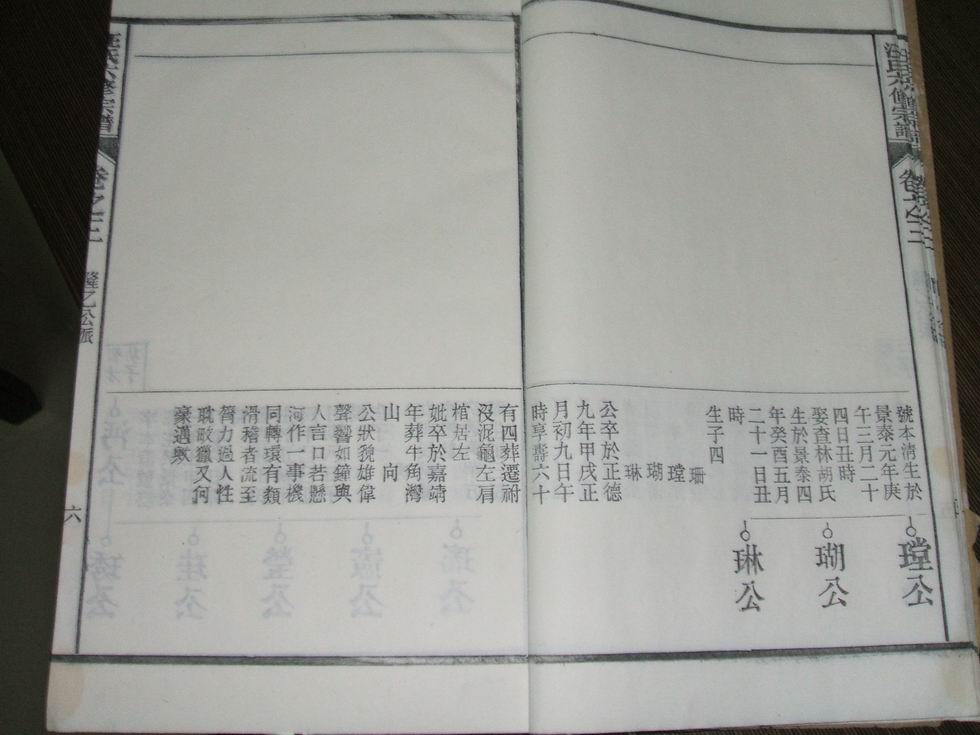 汪氏六修宗譜
卷之二
號本清生於
景泰元年庚
午三月二十
四日丑時
娶查林胡氏
生於景泰四
年癸酉五月
二十一日丑
時
生子四
珊
瑝
瑚
琳
公卒於正德
九年甲戌正
月初九日午
時享壽六十
有四葬遷祔
沒泥龜左肩
棺居左
妣卒於嘉靖
年葬牛角灣
山向
公狀貌雄偉
聲響如鐘與
人言口若懸
河作一事機
同轉環有類
滑稽者流至
膂力過人性
耽畋獵又何
豪邁歟
瑝公
瑚公
琳公
汪氏六修宗譜
卷之二
隆乙公派
六